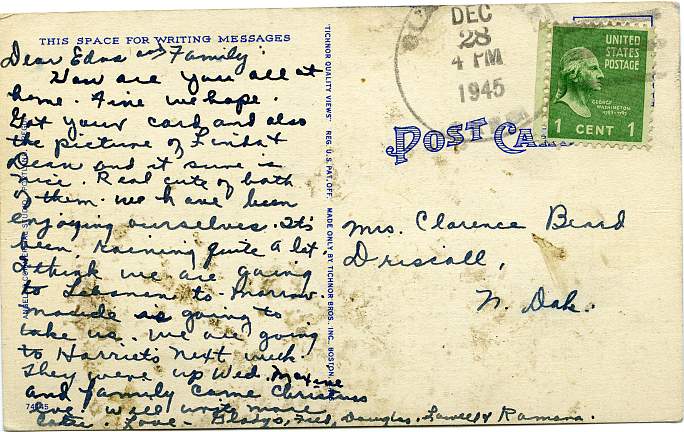 THIS SPACE FOR WRITING MESSAGES
Dear Edna and Family:
How are you all at
home. Fine we hope.
Got your card and also
the picture of Linda &
Dean and it sure is
nice. Real cute of both
of them. We have been
enjoying ourselves. It's
been, raining quite a lot
I think we are going
to Lebanon to-morrow.
is going to
take us. We are going
to Harriets next week.
They were up Wed. Maxine
and family came Christmas
Eve. Will write more
later. Love - Gladys, Fred, Douglas, Lowell & Ramona.
74845
"TICHNOR QUALITY VIEWS" REG. U. S. PAT. OFF. MADE ONLY BY TICHNOR BROS. INC., BOSTON, MASS.
DEC
28
4 PM
1945
UNITED
STATES
POSTAGE
GEORGE
WASHINGTON
1 CENT 1
POST CARD
Mrs. Clarence Beard
Driscoll,
N. Dak.